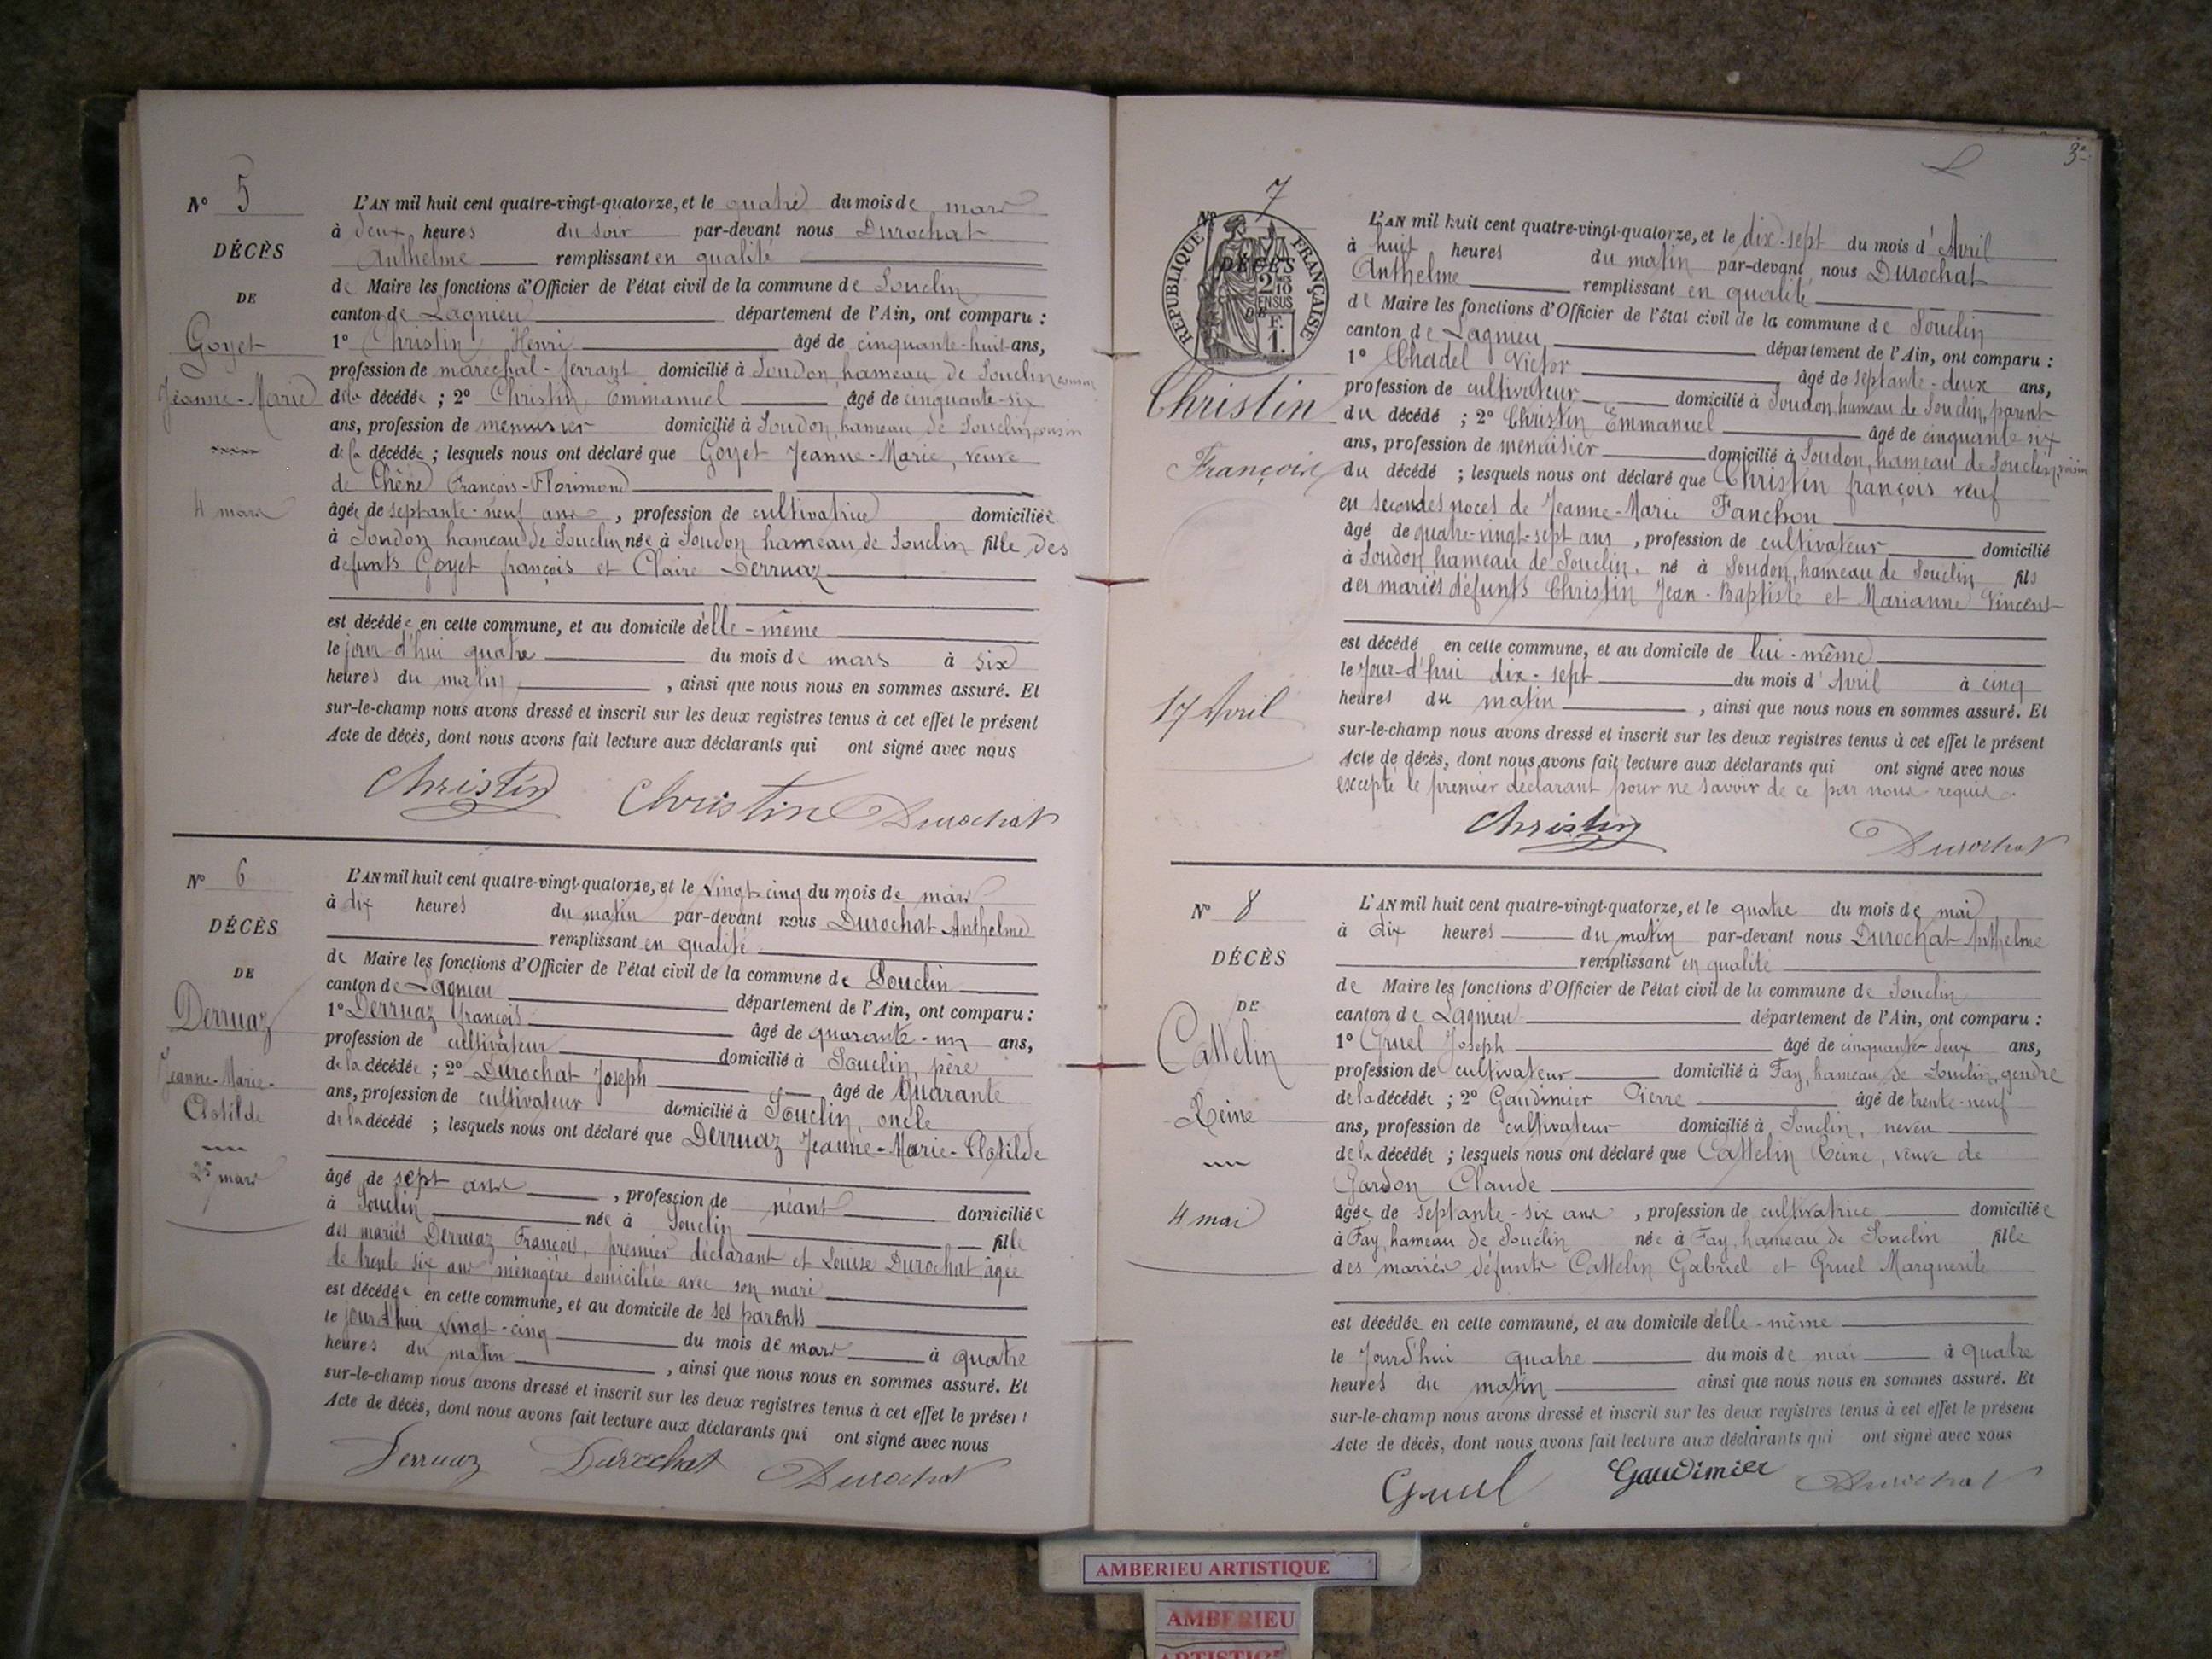 N° 5
DÉCÈS
DE
Goyet
Jeanne-Marie
4 mars
L'AN mil huit cent quatre-vingt-quatorze, et le quatre du mois de mars
à deux heures du soir par-devant nous Durochat
Anthelme remplissant en qualité
de Maire les fonctions d'Officier de l'état civil de la commune de Souclin
canton de Lagnieu département de l'Ain, ont comparu :
1° Christin Henri âgé de cinquante-huit ans,
profession de maréchal-ferrant domicilié à Soudon, hameau de Souclin, cousin
de la décédée ; 2° Christin, Emmanuel âgé de cinquante-six
ans, profession de menuisier domicilié à Soudon, hameau de Souclin, cousin
de la décédée ; lesquels nous ont déclaré que Goyet Jeanne-Marie, veuve
de Chêne François-Florimond
âgée de septante-neuf ans, profession de cultivatrice domiciliée
à Soudon hameau de Souclin née à Soudon hameau de Souclin fille des
defunts Goyet françois et Claire Derruaz
est décédée en cette commune, et au domicile d'elle-même
le jour d'hui quatre du mois de mars à six
heures du matin, ainsi que nous nous en sommes assuré. Et
sur-le-champ nous avons dressé et inscrit sur les deux registres tenus à cet effet le présent
Acte de décès, dont nous avons fait lecture aux déclarants qui ont signé avec nous
Christin Christin Durochat
N° 6
DÉCÈS
DE
Derruaz
Jeanne-Marie-
Clotilde
25 mars
L'AN mil huit cent quatre-vingt-quatorze, et le vingt-cinq du mois de mars
à dix heures du matin par-devant nous Durochat Anthelme
remplissant en qualité
de Maire les fonctions d'Officier de l'état civil de la commune de Souclin
canton de Lagnieu département de l'Ain, ont comparu :
1° Derruaz françois âgé de quarante-un ans,
profession de cultivateur domicilié à Souclin, père
de la décédée ; 2° Durochat Joseph âgé de Quarante
ans, profession de cultivateur domicilié à Souclin, oncle
de la décédé ; lesquels nous ont déclaré que Derruaz Jeanne-Marie-Clotilde
âgé de sept ans, profession de néant domiciliée
à Souclin née à Souclin fille
des mariés Derruaz François, premier déclarant et Louise Durochat, âgée
de trente six ans, ménagère domiciliée avec son mari
est décédée en cette commune, et au domicile de ses parents
le jourd'hui vingt-cinq du mois de mars à quatre
heures du matin, ainsi que nous nous en sommes assuré. Et
sur-le-champ nous avons dressé et inscrit sur les deux registres tenus à cet effet le présent
Acte de décès, dont nous avons fait lecture aux déclarants qui ont signé avec nous
Derruaz Durochat Durochat
3
N° 7
RÉPUBLIQUE FRANÇAISE
DÉCÈS
2/10
EN SUS
F.
1.
Christin
François
17 Avril
L'AN mil huit cent quatre-vingt-quatorze, et le dix-sept du mois d'Avril
à huit heures du matin par-devant nous Durochat
Anthelme remplissant en qualité
de Maire les fonctions d'Officier de l'état civil de la commune de Souclin
canton de Lagnieu département de l'Ain, ont comparu :
1° Chadel Victor âgé de septante-deux ans,
profession de cultivateur domicilié à Soudon, hameau de Souclin, parent
du décédé ; 2° Christin Emmanuel âgé de cinquante six
ans, profession de menuisier domicilié à Soudon, hameau de Souclin, voisin
du décédé ; lesquels nous ont déclaré que Christin françois veuf
en secondes noces de Jeanne-Marie Fanchon
âgé de quatre-vingt-sept ans, profession de cultivateur domicilié
à Soudon hameau de Souclin, né à Soudon, hameau de Souclin fils
des mariés défunts Christin Jean-Baptiste et Marianne Vincent
est décédé en cette commune, et au domicile de lui-même
le Jour-d'hui dix-sept du mois d'Avril à cinq
heures du matin, ainsi que nous nous en sommes assuré. Et
sur-le-champ nous avons dressé et inscrit sur les deux registres tenus à cet effet le présent
Acte de décès, dont nous avons fait lecture aux déclarants qui ont signé avec nous
excepté le premier déclarant pour ne savoir de ce par nous requis.
Christin Durochat
N° 8
DÉCÈS
DE
Cattelin
Reine
4 mai
L'AN mil huit cent quatre-vingt-quatorze, et le quatre du mois de mai
à dix heures du matin par-devant nous Durochat Anthelme
remplissant en qualité
de Maire les fonctions d'Officier de l'état civil de la commune de Souclin
canton de Lagnieu département de l'Ain, ont comparu :
1° Gruel Joseph âgé de cinquante-deux ans,
profession de cultivateur domicilié à Fay, hameau de Souclin, gendre
de la décédée ; 2° Gaudimier Pierre âgé de trente-neuf
ans, profession de cultivateur domicilié à Souclin, neveu
de la décédée ; lesquels nous ont déclaré que Cattelin Reine, veuve de
Gardon Claude
âgée de septante-six ans, profession de cultivatrice domiciliée
à Fay, hameau de Souclin née à Fay, hameau de Souclin fille
des mariés défunts Cattelin Gabriel et Gruel Marguerite
est décédée en cette commune, et au domicile d'elle-même
le Jourd'hui quatre du mois de mai à quatre
heures du matin ainsi que nous nous en sommes assuré. Et
sur-le-champ nous avons dressé et inscrit sur les deux registres tenus à cet effet le présent
Acte de décès, dont nous avons fait lecture aux déclarants qui ont signé avec nous
Gruel Gaudimier Durochat
AMBERIEU ARTISTIQUE
AMBERIEU
ARTISTIQUE